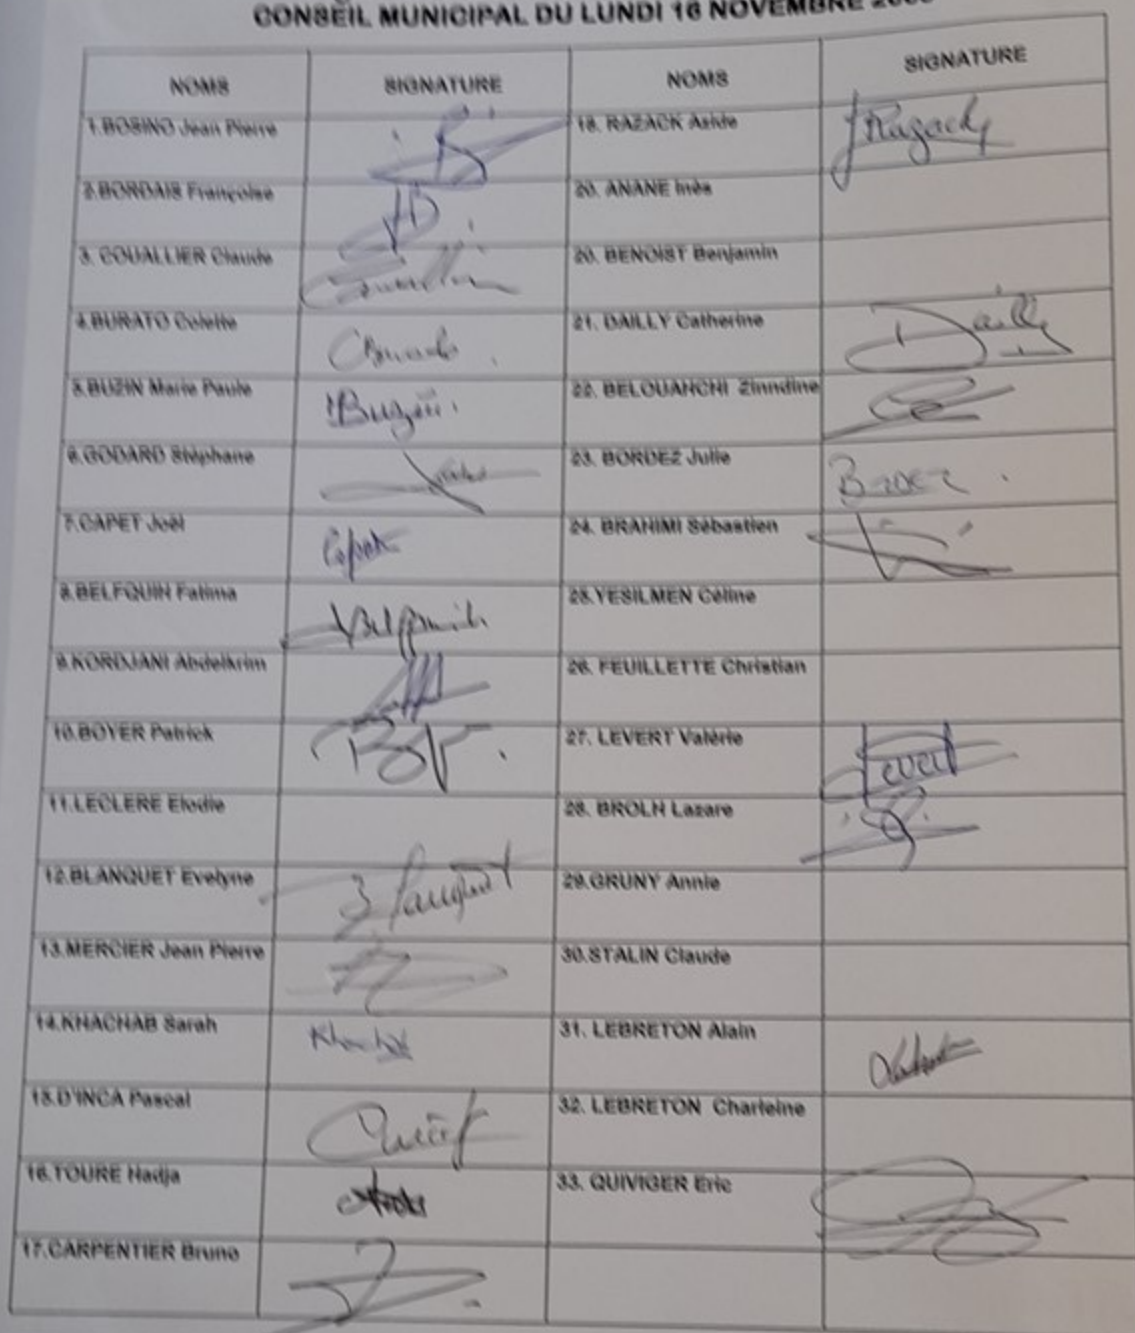 CONSEIL MUNICIPAL DU LUNDI 16 NOVEMBRE
NOMS SIGNATURE NOMS SIGNATURE
1.BOSINO Jean Pierre 18. RAZACK Aside JRazack
2.BORDAIS Françoise 20. ANANE Inès
3. COUALLIER Claude 20. BENOIST Benjamin
4.BURATO Colette 21. DAILLY Catherine Dailly
5.BUZIN Marie Paule Buzin 22. BELOUAHCHI Zinndine
6.GODARD Stéphane 23. BORDEZ Julie
7.CAPET Joël Capet 24. BRAHIMI Sébastien
8.BELFQUIH Fatima 25.YESILMEN Céline
9.KORDJANI Abdelkrim 26. FEUILLETTE Christian
10.BOYER Patrick 27. LEVERT Valérie Levert
11.LECLERE Elodie 28. BROLH Lazare
12.BLANQUET Evelyne 29.GRUNY Annie
13.MERCIER Jean Pierre 30.STALIN Claude
14.KHACHAB Sarah 31. LEBRETON Alain
15.D'INCA Pascal 32. LEBRETON Charleine
16.TOURE Hadja 33. QUIVIGER Eric
17.CARPENTIER Bruno